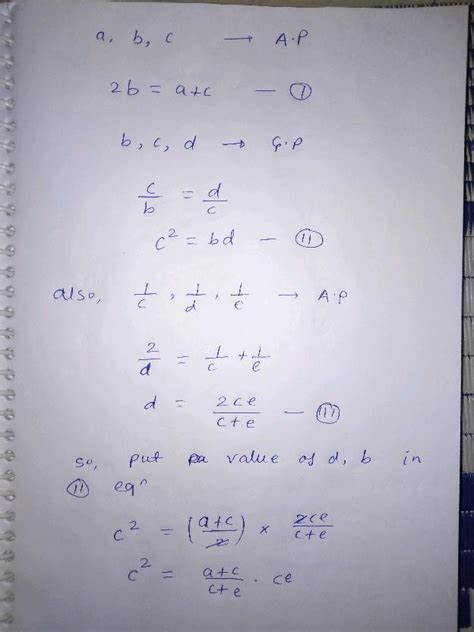 a, b, c → A.P
2b = a+c — (I)
b, c, d → G.P
c/b = d/c
c² = bd — (II)
also, 1/c, 1/d, 1/e → A.P
2/d = 1/c + 1/e
d = 2ce/(c+e) — (III)
so, put value of d, b in
(II) eqⁿ
c² = ((a+c)/2) × 2ce/(c+e)
c² = (a+c)/(c+e) · ce